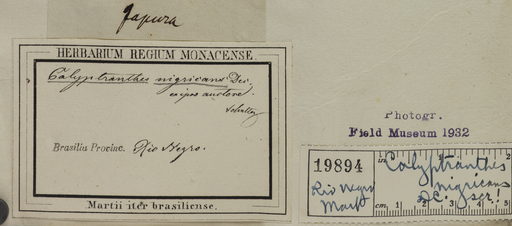 Japura
HERBARIUM REGIUM MONACENSE.
Calyptranthes nigricans Dec.
ex ipso auctore.
Brasiliæ Provinc. Rio Negro.
Martii iter brasiliense.
Photogr.
Field Museum 1932
19894
Rio Negro
Mart
Calyptranthes
nigricans
DC. scr!
cm 1 2 3 4 5